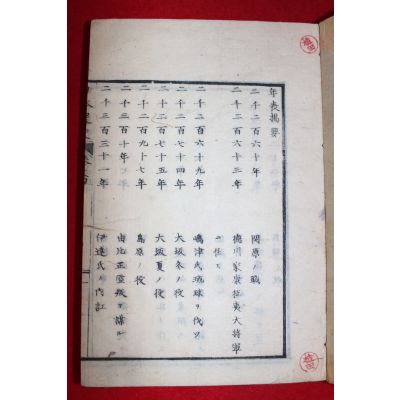 年表摘要
二千二百六十年 関原ノ戦
二千二百六十三年 徳川家康征夷大将軍
ニ任ス
二千二百六十九年 嶋津氏琉球ヲ伐ツ
二千二百七十四年 大坂冬ノ役
二千二百七十五年 大坂夏ノ役
二千二百九十七年 島原ノ役
二千三百十年 由比正雪叛ヲ謀ル
二千三百三十一年 伊達氏ノ内訌